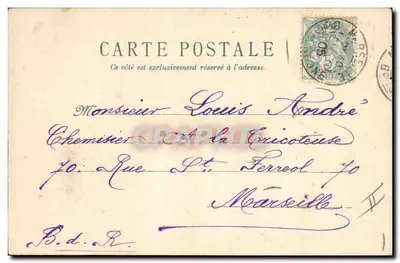 CARTE POSTALE
Ce côté est exclusivement réservé à l'adresse.
Monsieur Louis André
Chemisier A la Tricoteuse
70. Rue St. Ferreol 70
Marseille
B. d. R.